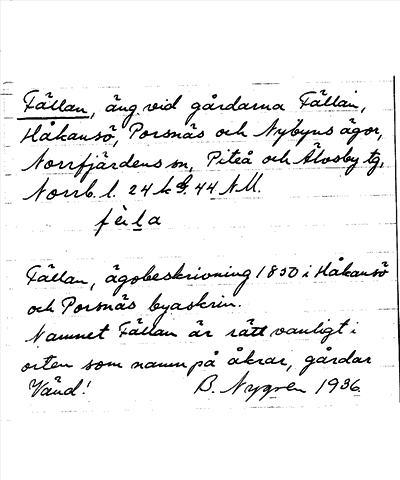 Fällan, äng vid gårdarna Fällan,
Håkansö, Porsnäs och Nybyns ägor,
Norrfjärdens sn, Piteå och Älvsby tg,
Norrb. l. 24 k 44 NM.
fɛ̀la
Fällan, ägobeskrivning 1850 i Håkansö
och Porsnäs byaskrin.
Namnet Fällan är rätt vanligt i
orten som namn på åkrar, gårdar
Vänd! B. Nygren 1936.